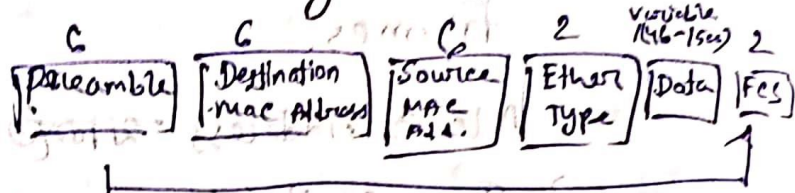 6 6 6 2 Variable (46-1500) 2
Preamble
Destination Mac Address
Source MAC Add.
Ether Type
Data
FCS